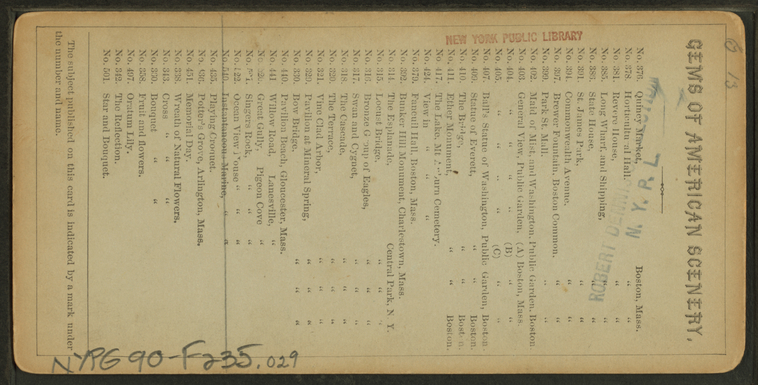 GEMS OF AMERICAN SCENERY,
No. 376. Quincy Market, Boston, Mass.
No. 378. Horticultural Hall, " "
No. 381. Revere House, " "
No. 385. Long Wharf and Shipping, " "
No. 386. State House, " "
No. 391. St. James Park, " "
No. 394. Commonwealth Avenue. " "
No. 397. Brewer Fountain, Boston Common.
No. 399. Park St. Mall.
No. 402. Maid of Mist, and Washington, Public Garden, Boston
No. 403. General View, Public Garden, (A) Boston, Mass.
No. 404. " " " " (B)
No. 405. " " " " (C)
No. 407. Ball's Statue of Washington, Public Garden, Boston
No. 409. Statue of Everett, " " Boston.
No. 410. The " " Boston.
No. 411. Ether Monument, " " Boston.
No. 417. The Lake, Mt. Auburn Cemetery.
No. 424. View in " "
No. 370. Faneuil Hall, Boston, Mass.
No. 392. Bunker Hill Monument, Charlestown, Mass.
No. 314. The Esplanade, Central Park, N. Y.
No. 315. Bridge, " "
No. 316. Bronze Group of Eagles, " "
No. 317. Swan and Cygnet, " "
No. 318. The Cascade, " "
No. 320. The Terrace, " "
No. 321. Vine Clad Arbor, " "
No. 329. Pavilion at Mineral Spring, " "
No. 330. Bow Bridge, " "
No. 440. Pavilion Beach, Gloucester, Mass.
No. 441. Willow Road, Lanesville, "
Great Gully, Pigeon Cove "
Singers Rock, " "
Ocean View House " "
Instantaneous, Marine, "
No. 435. Playing Croquet.
No. 436. Potter's Grove, Arlington, Mass.
No. 451. Memorial Day.
No. 338. Wreath of Natural Flowers.
No. 343. Cross " " "
No. 350. Bouquet " " "
No. 358. Fruit and flowers.
No. 497. Oratum Lily.
No. 342. The Reflection.
No. 501. Star and Bouquet
The subject published on this card is indicated by a mark under
the number and name.
NEW YORK PUBLIC LIBRARY
ROBERT
N. Y. P. L
NYPG 90-F235.029